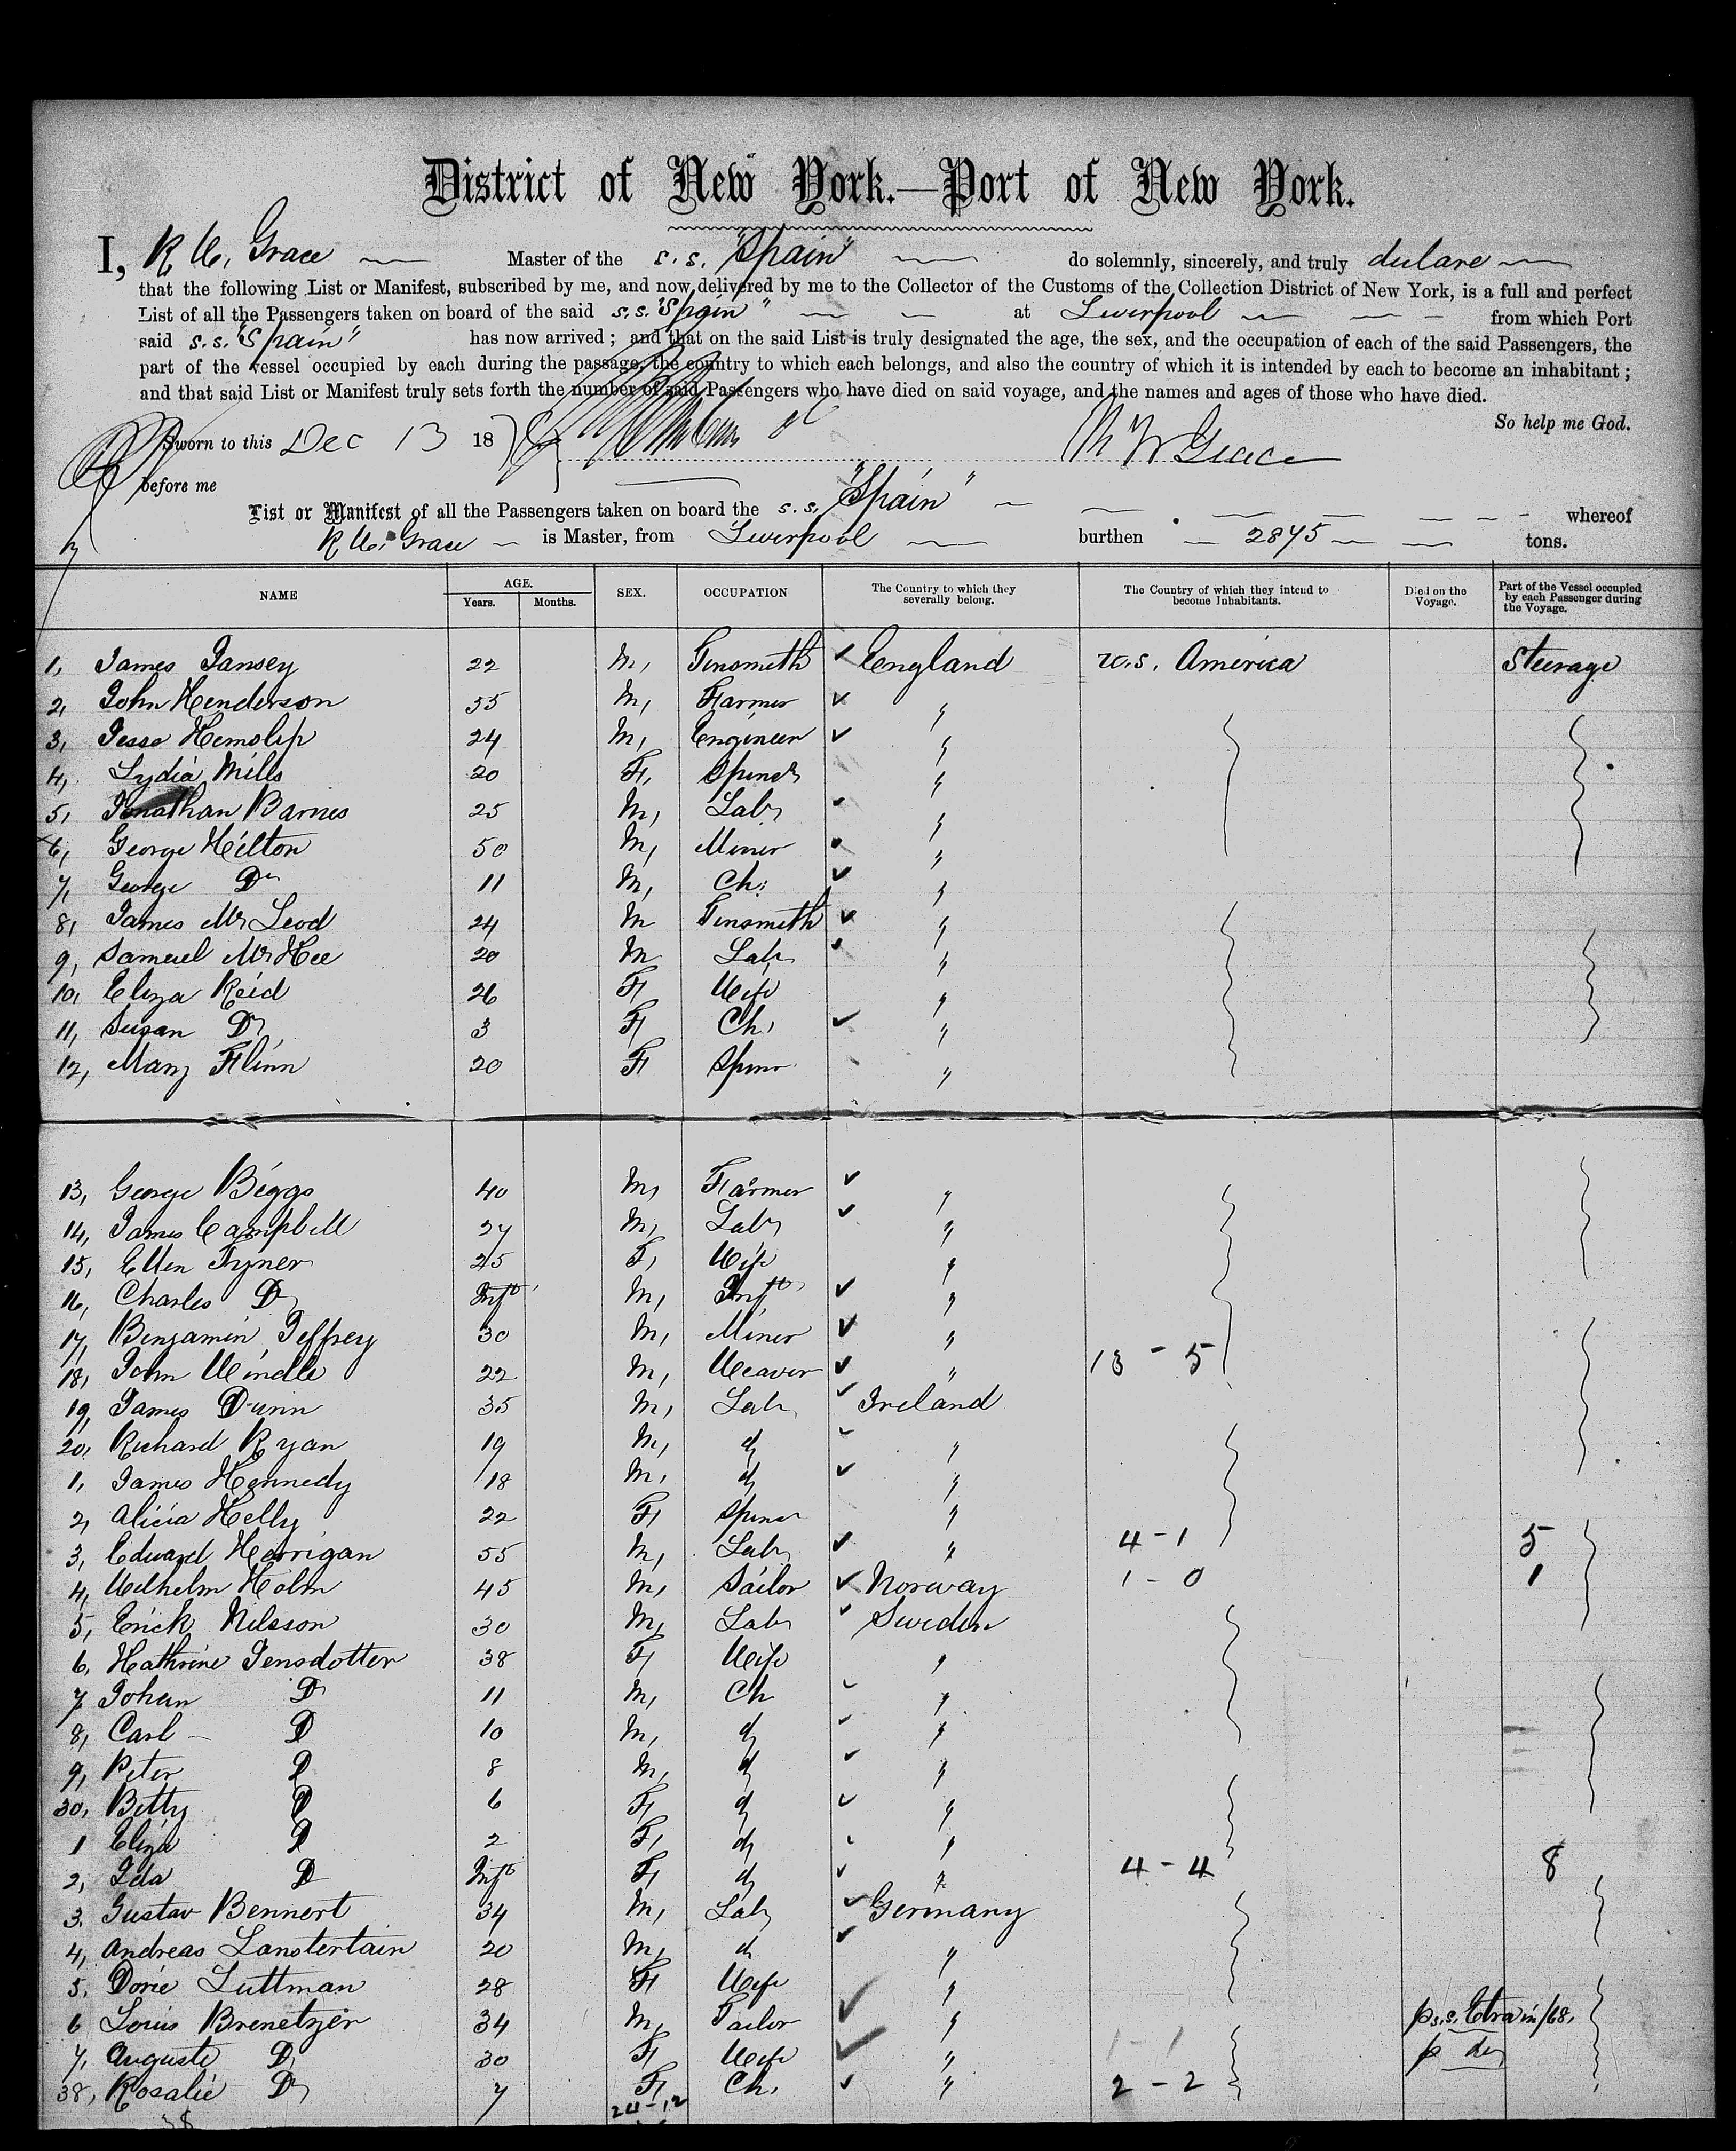 District of New York.—Port of New York.
I, R W. Grace Master of the s.s. "Spain" do solemnly, sincerely, and truly declare
that the following List or Manifest, subscribed by me, and now delivered by me to the Collector of the Customs of the Collection District of New York, is a full and perfect
List of all the Passengers taken on board of the said s.s. "Spain" at Liverpool from which Port
said s.s. "Spain" has now arrived; and that on the said List is truly designated the age, the sex, and the occupation of each of the said Passengers, the
part of the vessel occupied by each during the passage, the country to which each belongs, and also the country of which it is intended by each to become an inhabitant;
and that said List or Manifest truly sets forth the number of said Passengers who have died on said voyage, and the names and ages of those who have died.
So help me God.
Sworn to this Dec 13 18 R W Grace
before me
List or Manifest of all the Passengers taken on board the s.s. "Spain" whereof
R W. Grace is Master, from Liverpool burthen 2875 tons.
NAME AGE. Years. Months. SEX. OCCUPATION The Country to which they severally belong. The Country of which they intend to become Inhabitants. Died on the Voyage. Part of the Vessel occupied by each Passenger during the Voyage.
1, James Tansey 22 M, Tinsmith England U.S. America Steerage
2, John Henderson 55 M, Farmer "
3, Jesse Hemslip 24 M, Engineer "
4, Lydia Mills 20 F, Spinstr "
5, Jonathan Barnes 25 M, Labr "
6, George Hilton 50 M, Miner "
7, George Do 11 M, Ch: "
8, James McLeod 24 M Tinsmith "
9, Samuel McKee 20 M Labr "
10, Eliza Reid 26 F Wife "
11, Susan Do 3 F Ch, "
12, Mary Flinn 20 F Spinr "
13, George Biggs 40 M, Farmer "
14, James Campbell 27 M, Labr "
15, Ellen Tyner 25 F, Wife "
16, Charles Do Inft M, Inft "
17, Benjamin Jeffrey 30 M, Miner "
18, John Windle 22 M, Weaver " 13 - 5
19, James Dunn 35 M, Labr Ireland
20, Richard Ryan 19 M, do "
1, James Kennedy 18 M, do "
2, Alicia Kelly 22 F Spinr "
3, Edward Kerrigan 55 M, Labr " 4 - 1 5
4, Wilhelm Holm 45 M, Sailor Norway 1 - 0 1
5, Erick Nilsson 30 M, Labr Sweden
6, Kathrine Jensdotter 38 F Wife "
7, Johan Do 11 M, Ch "
8, Carl - Do 10 M, do "
9, Peter Do 8 M, do "
30, Betty Do 6 F do "
1 Eliza Do 2 F, do "
2, Ida Do Inft F, do " 4 - 4 8
3, Gustav Bennert 34 M, Labr Germany
4, Andreas Lanstertain 20 M, do "
5, Dorie Luttman 28 F Wife "
6 Louis Brenetzer 34 M, Tailor " p s.s. Etna in /68.
7, Auguste Do 30 F Wife " 1 - 1 p do
38, Rosalie Do 7 F Ch, " 2 - 2
24-12
38